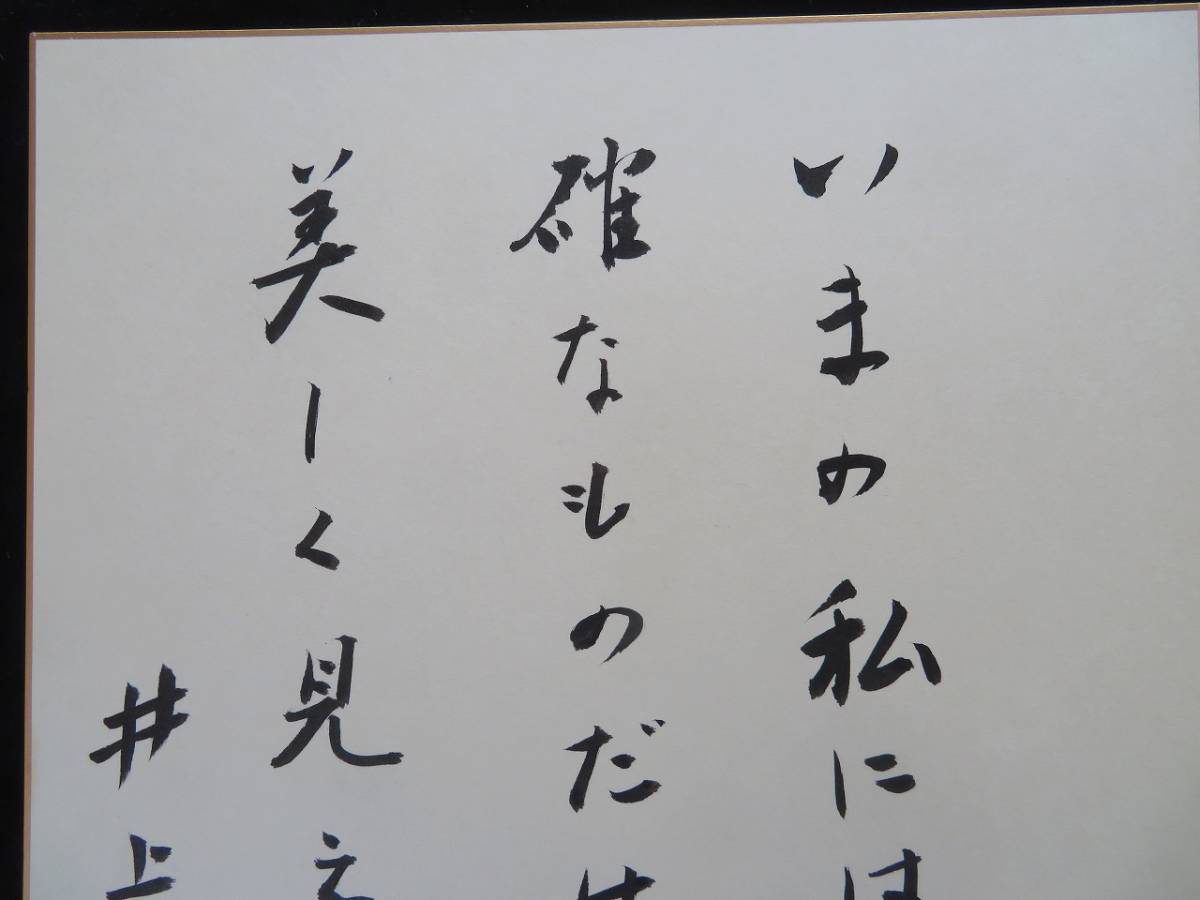 いまの私には
確なものだけ
美しく見え
井上